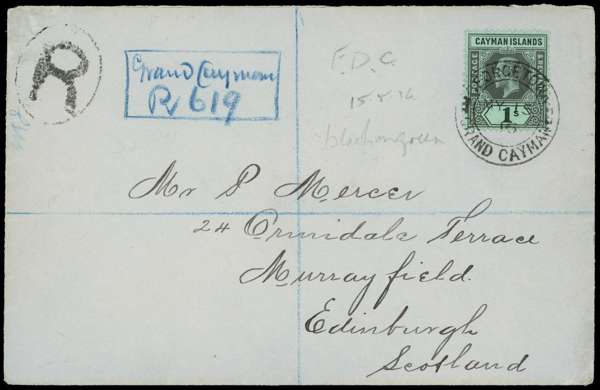 R
Grand Cayman
R 619
F.D.C.
15.5.16
black on green
CAYMAN ISLANDS
POSTAGE
1s
GEORGETOWN
MY 15
16
GRAND CAYMAN
Mr P Mercer
24 Ormidale Terrace
Murrayfield.
Edinburgh
Scotland